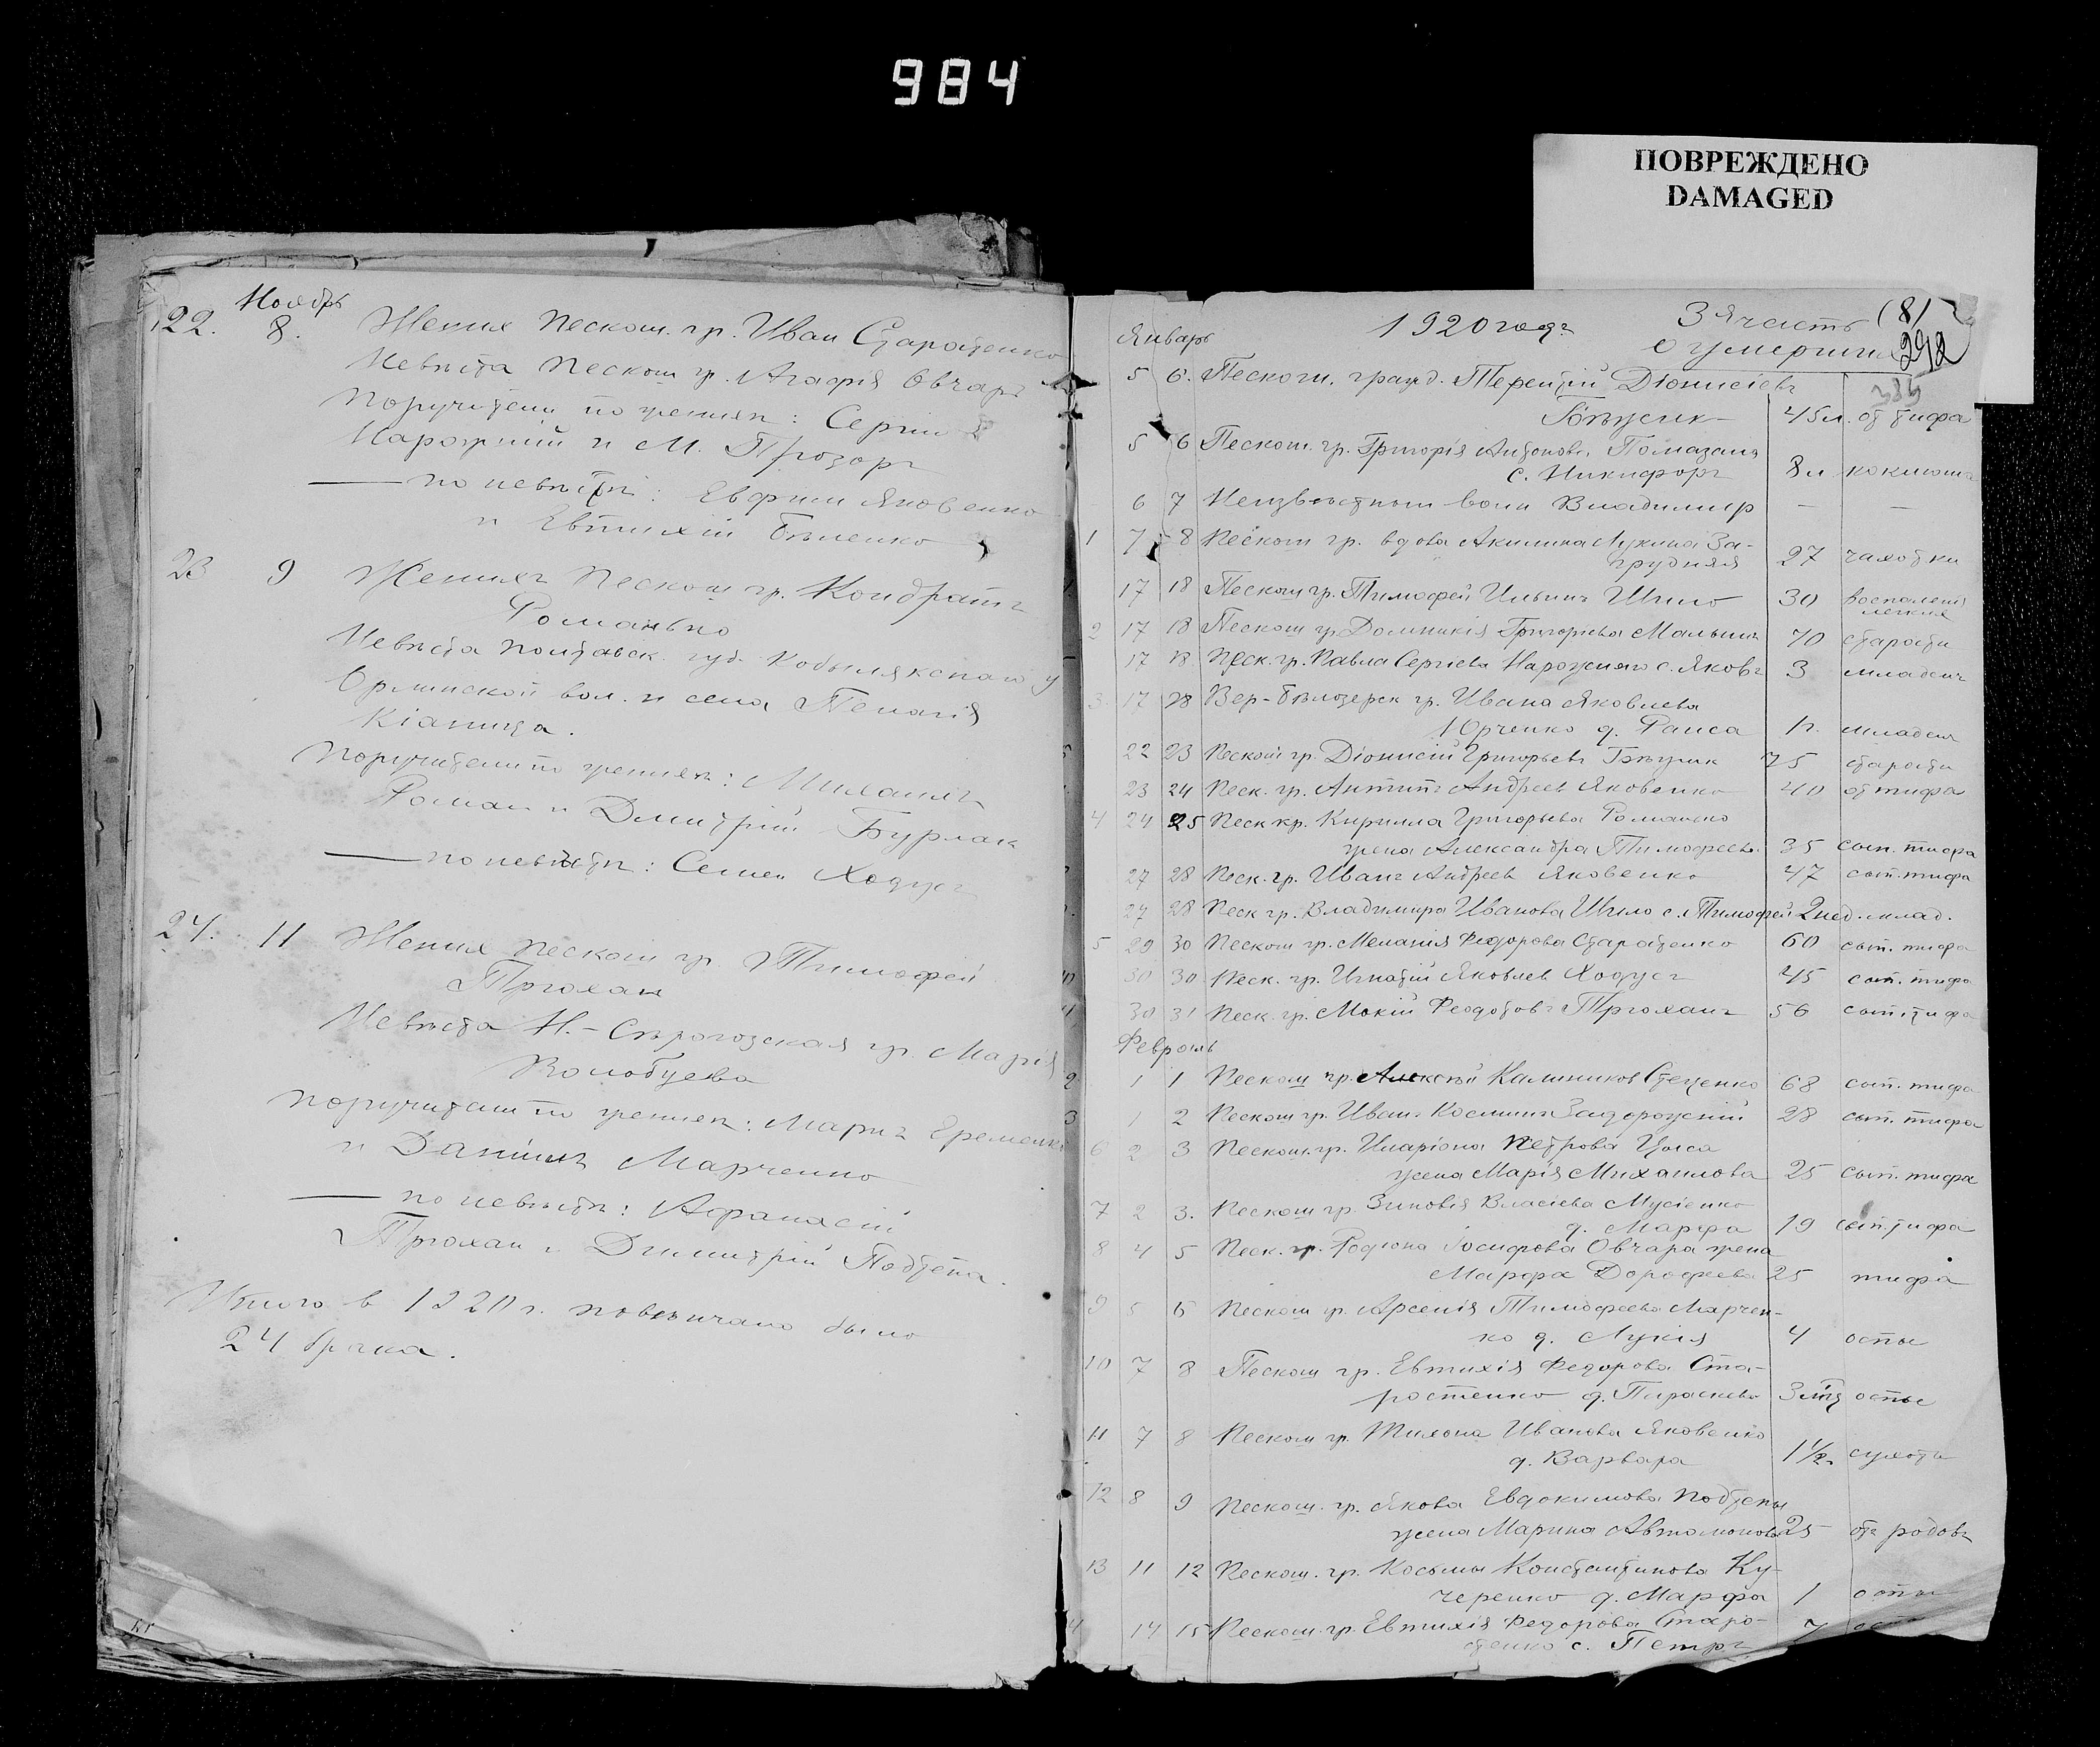 984
ПОВРЕЖДЕНО
DAMAGED
Ноябрь
22. 8. Жених Пескош. гр. Иван Старостенко
Невѣста Пескош гр. Агафія Овчаръ
Поручители по жених: Сергій
Нарожній и М. Прозоръ
— по невѣстѣ: Евфим Яковенко
и Евтихій Бѣленко
23 9 Женихъ Пескош гр. Кондратъ
Романько
Невѣста Полтавск. губ. Кобылякскаго у
вол. и села Пелагія
Поручители по женихѣ: Михаилъ
Роман и Дмитрій Бурлак
— по невѣстѣ: Семен Ходусъ
24. 11 Жених Пескош гр. Тимофей
Прохан
Невѣста Н.-Сѣрогозская гр. Марія
Волобуева
Поручители по жених: Маркъ Еременко
и Даніилъ Марченко
— по невѣстѣ: Афанасій
Прохан и Димитрій Подтепа.
Итого в 1920 г. повѣнчано было
24 брака.
1920 годъ
3я часть (8)
О умерших 292
Январь
5 6. Пескош. гражд. Терентій Діонисіевъ
Бѣжик 45 л. от тифа
5 6 Пескош. гр. Григорія Антонова Помазана
с. Никифоръ 8 л коклюша
6 7 Неизвѣстный воин Владимир — —
1 7 8 Пескош гр. вдова Акилина Лукина За-
грудняя 27 чахотки
17 18 Пескош гр. Тимофей Ильинъ Шило 30 воспаленія легких
2 17 18 Пескош гр. Домникія Григоріева Малышъ 70 старости
17 18 Песк. гр. Павла Сергіева Нарожняго с. Яковъ 3 младенч
3 17 28 Вер-Бѣлозерск гр. Ивана Яковлева
Юрченко д. Раиса 1 г. младен
22 23 Пескош гр. Діонисій Григорьевъ Бѣжик 75 старости
23 24 Песк. гр. Антипъ Андреев Яковенко 40 от тифа
4 24 25 Песк кр. Кирилла Григорьева Романько
жена Александра Тимофеев. 35 сып. тифа
27 28 Песк. гр. Иванъ Андреев Яковенко 47 сып. тифа
27 28 Песк гр. Владимира Иванова Шило с. Тимофей 2 нед. млад.
5 29 30 Пескош гр. Меланія Федорова Старостенко 60 сып. тифа
30 30 Песк. гр. Игнатій Яковлев Ходусъ 45 сып. тифа
30 31 Песк. гр. Мокій Феодотовъ Проханъ 56 сып. тифа
Февраль
1 1 Пескош гр. Алексѣй Калиников Стеценко 68 сып. тифа
1 2 Пескош гр. Иванъ Космин Задорожній 28 сып. тифа
6 2 3 Пескош. гр. Иларіона Петрова Цыса
жена Марія Михаилова 25 сып. тифа
7 2 3. Пескош гр. Зиновія Власіева Мусіенко
д. Марфа 19 сып. тифа
8 4 5 Песк. гр. Родіона Іосифова Овчара жена
Марфа Дорофеева 25 тифа
9 5 6 Пескош гр. Арсенія Тимофеева Марчен-
ко д. Лукія 4 оспы
10 7 8 Пескош гр. Евтихія Федорова Ста-
ростенко д. Параскева оспы
11 7 8 Пескош гр. Тихона Иванова Яковенко
д. Варвара 1 1/2 сухоты
12 8 9 Пескош. гр. Якова Евдокимова Подтепы
жена Марина Автомонова 25 отъ родовъ
13 11 12 Пескош. гр. Косьмы Константинова Ку-
черенко д. Марфа 1 оспы
14 15 Пескош. гр. Евтихія Федорова Старо-
стенко с. Петръ 7